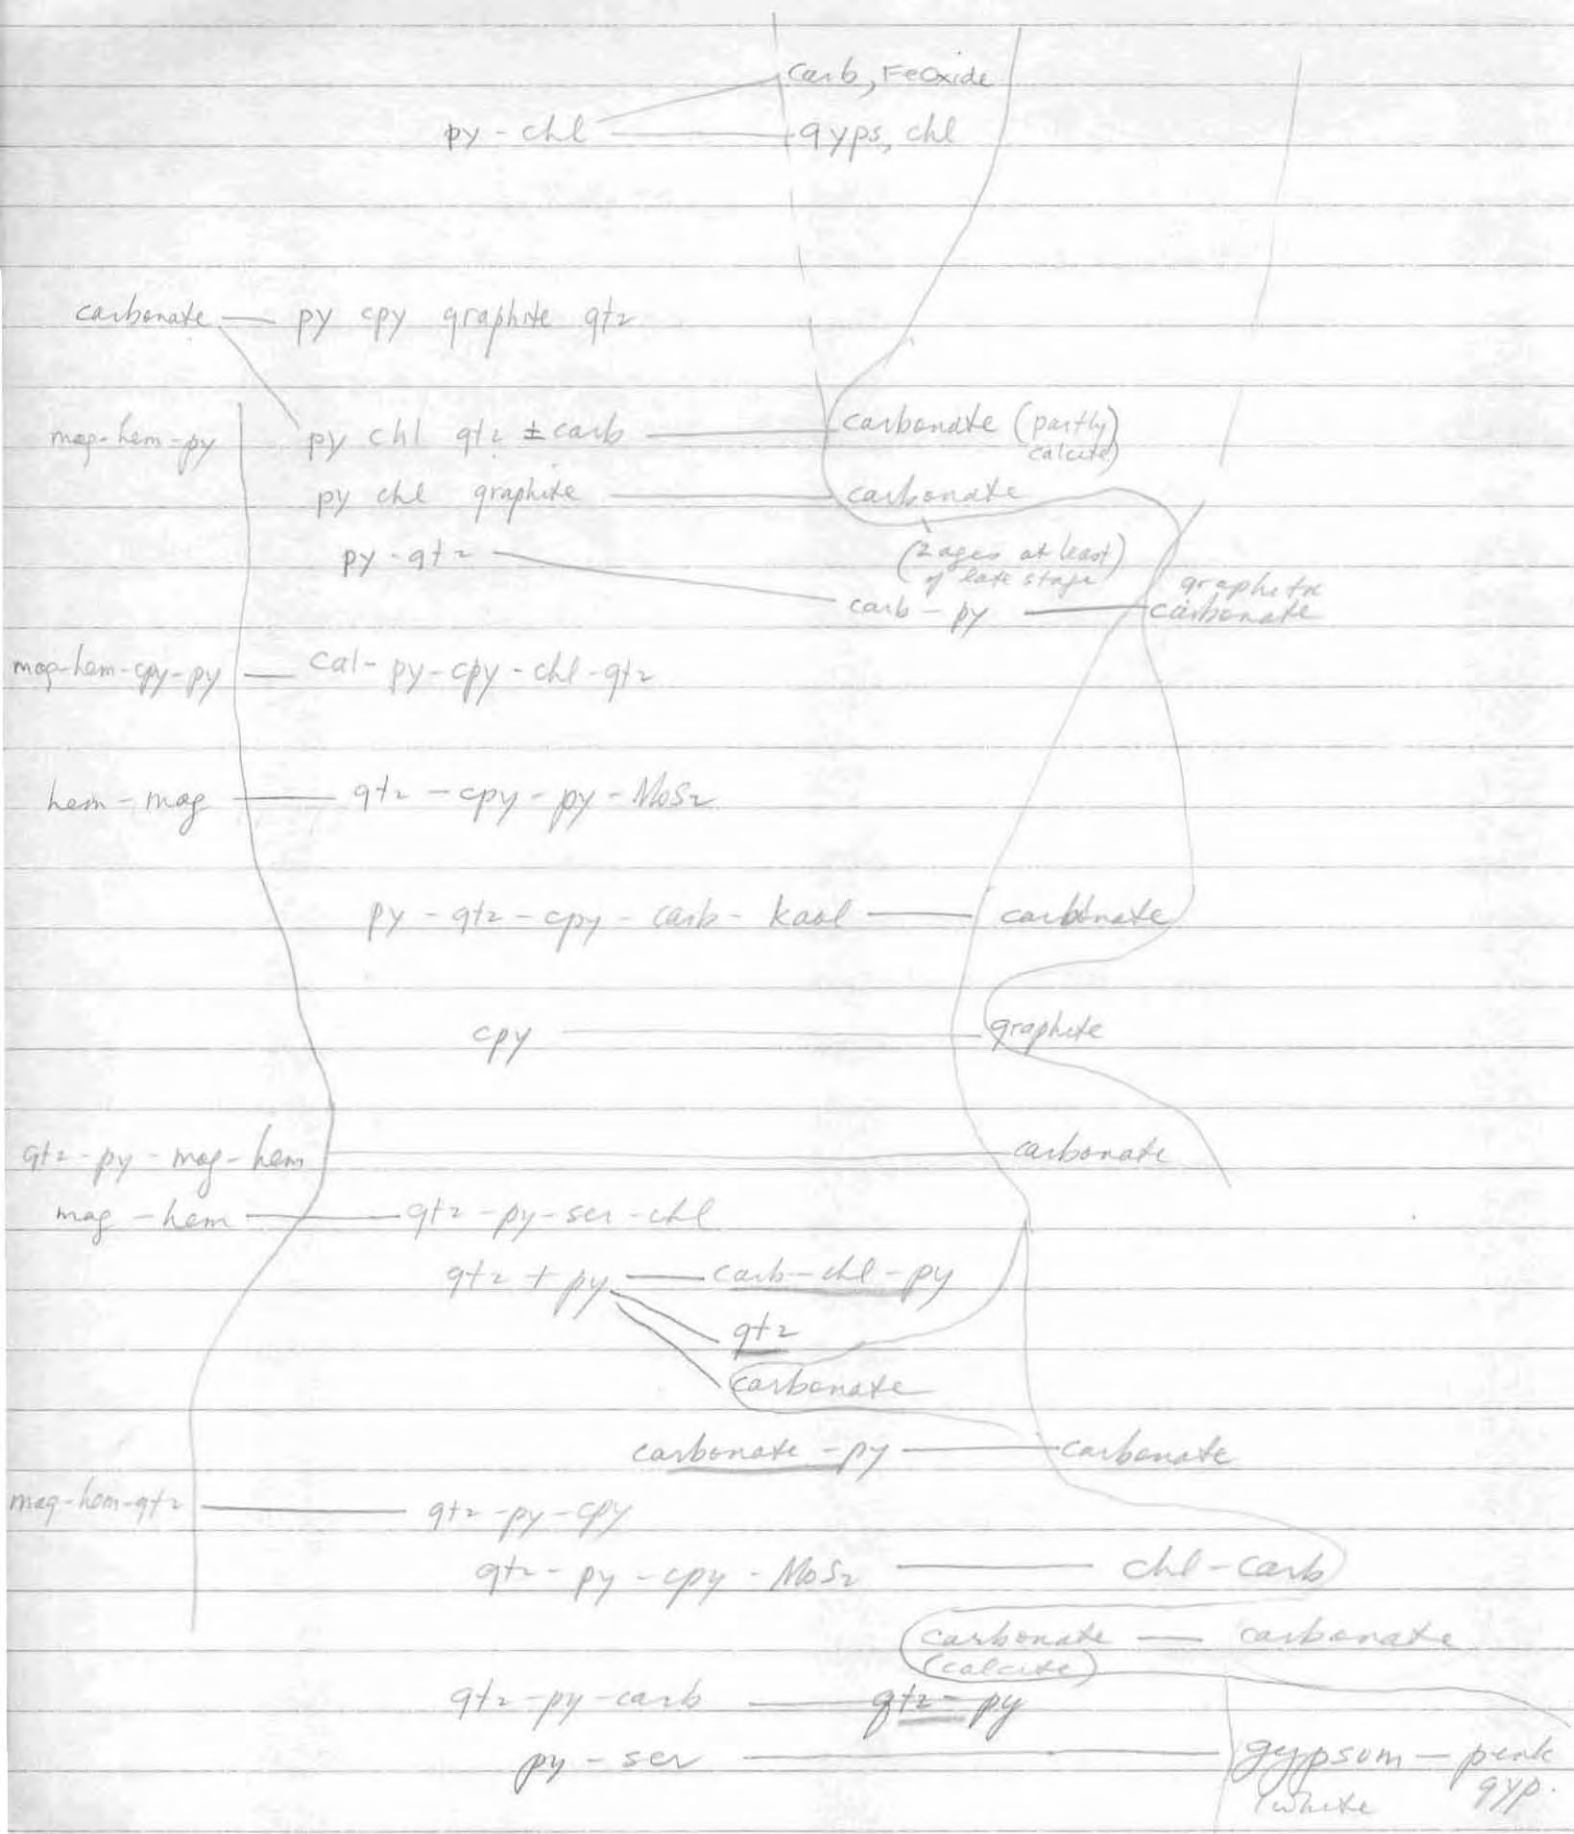 carb, FeOxide
py - chl gyps, chl
carbonate py cpy graphite qtz
mag-hem-py py chl qtz ± carb carbonate (partly calcite)
py chl graphite carbonate
py - qtz (2 ages at least) of late stage
carb - py carbonate
mag-hem-cpy-py cal - py - cpy - chl - qtz
hem - mag qtz - cpy - py - MoS2
py - qtz - cpy - carb - kaol carbonate
cpy graphite
qtz - py - mag - hem carbonate
mag - hem qtz - py - ser - chl
qtz + py carb - chl - py
qtz
carbonate
carbonate - py carbonate
mag-hem-qtz qtz - py - cpy
qtz - py - cpy - MoS2 chl - carb
carbonate — carbonate
(calcite)
qtz - py - carb qtz - py
py - ser gypsum — pink
white gyp.